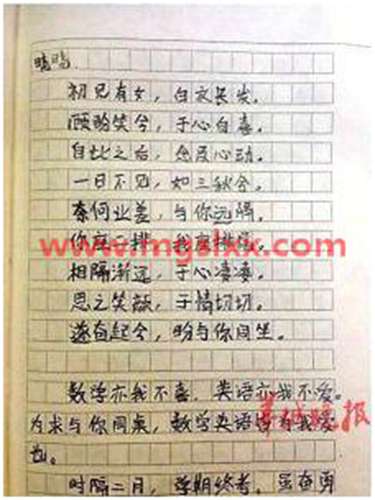 晓晓
初见有女，白衣长发。
顾盼笑兮，于心自喜。
自此之后，念及心动。
一日不见，如三秋兮。
奈何业差，与你远隔。
你座二排，我座排
www.mgslxx.com
相隔渐远，于心凄凄。
思之笑颜，于情切切。
遂奋起兮，盼与你同坐。
数学亦我不喜，英语亦我不爱。
为求与你同桌，数学英语皆为我爱
也。
羊城晚报
时隔二月，学期终考，虽奋勇